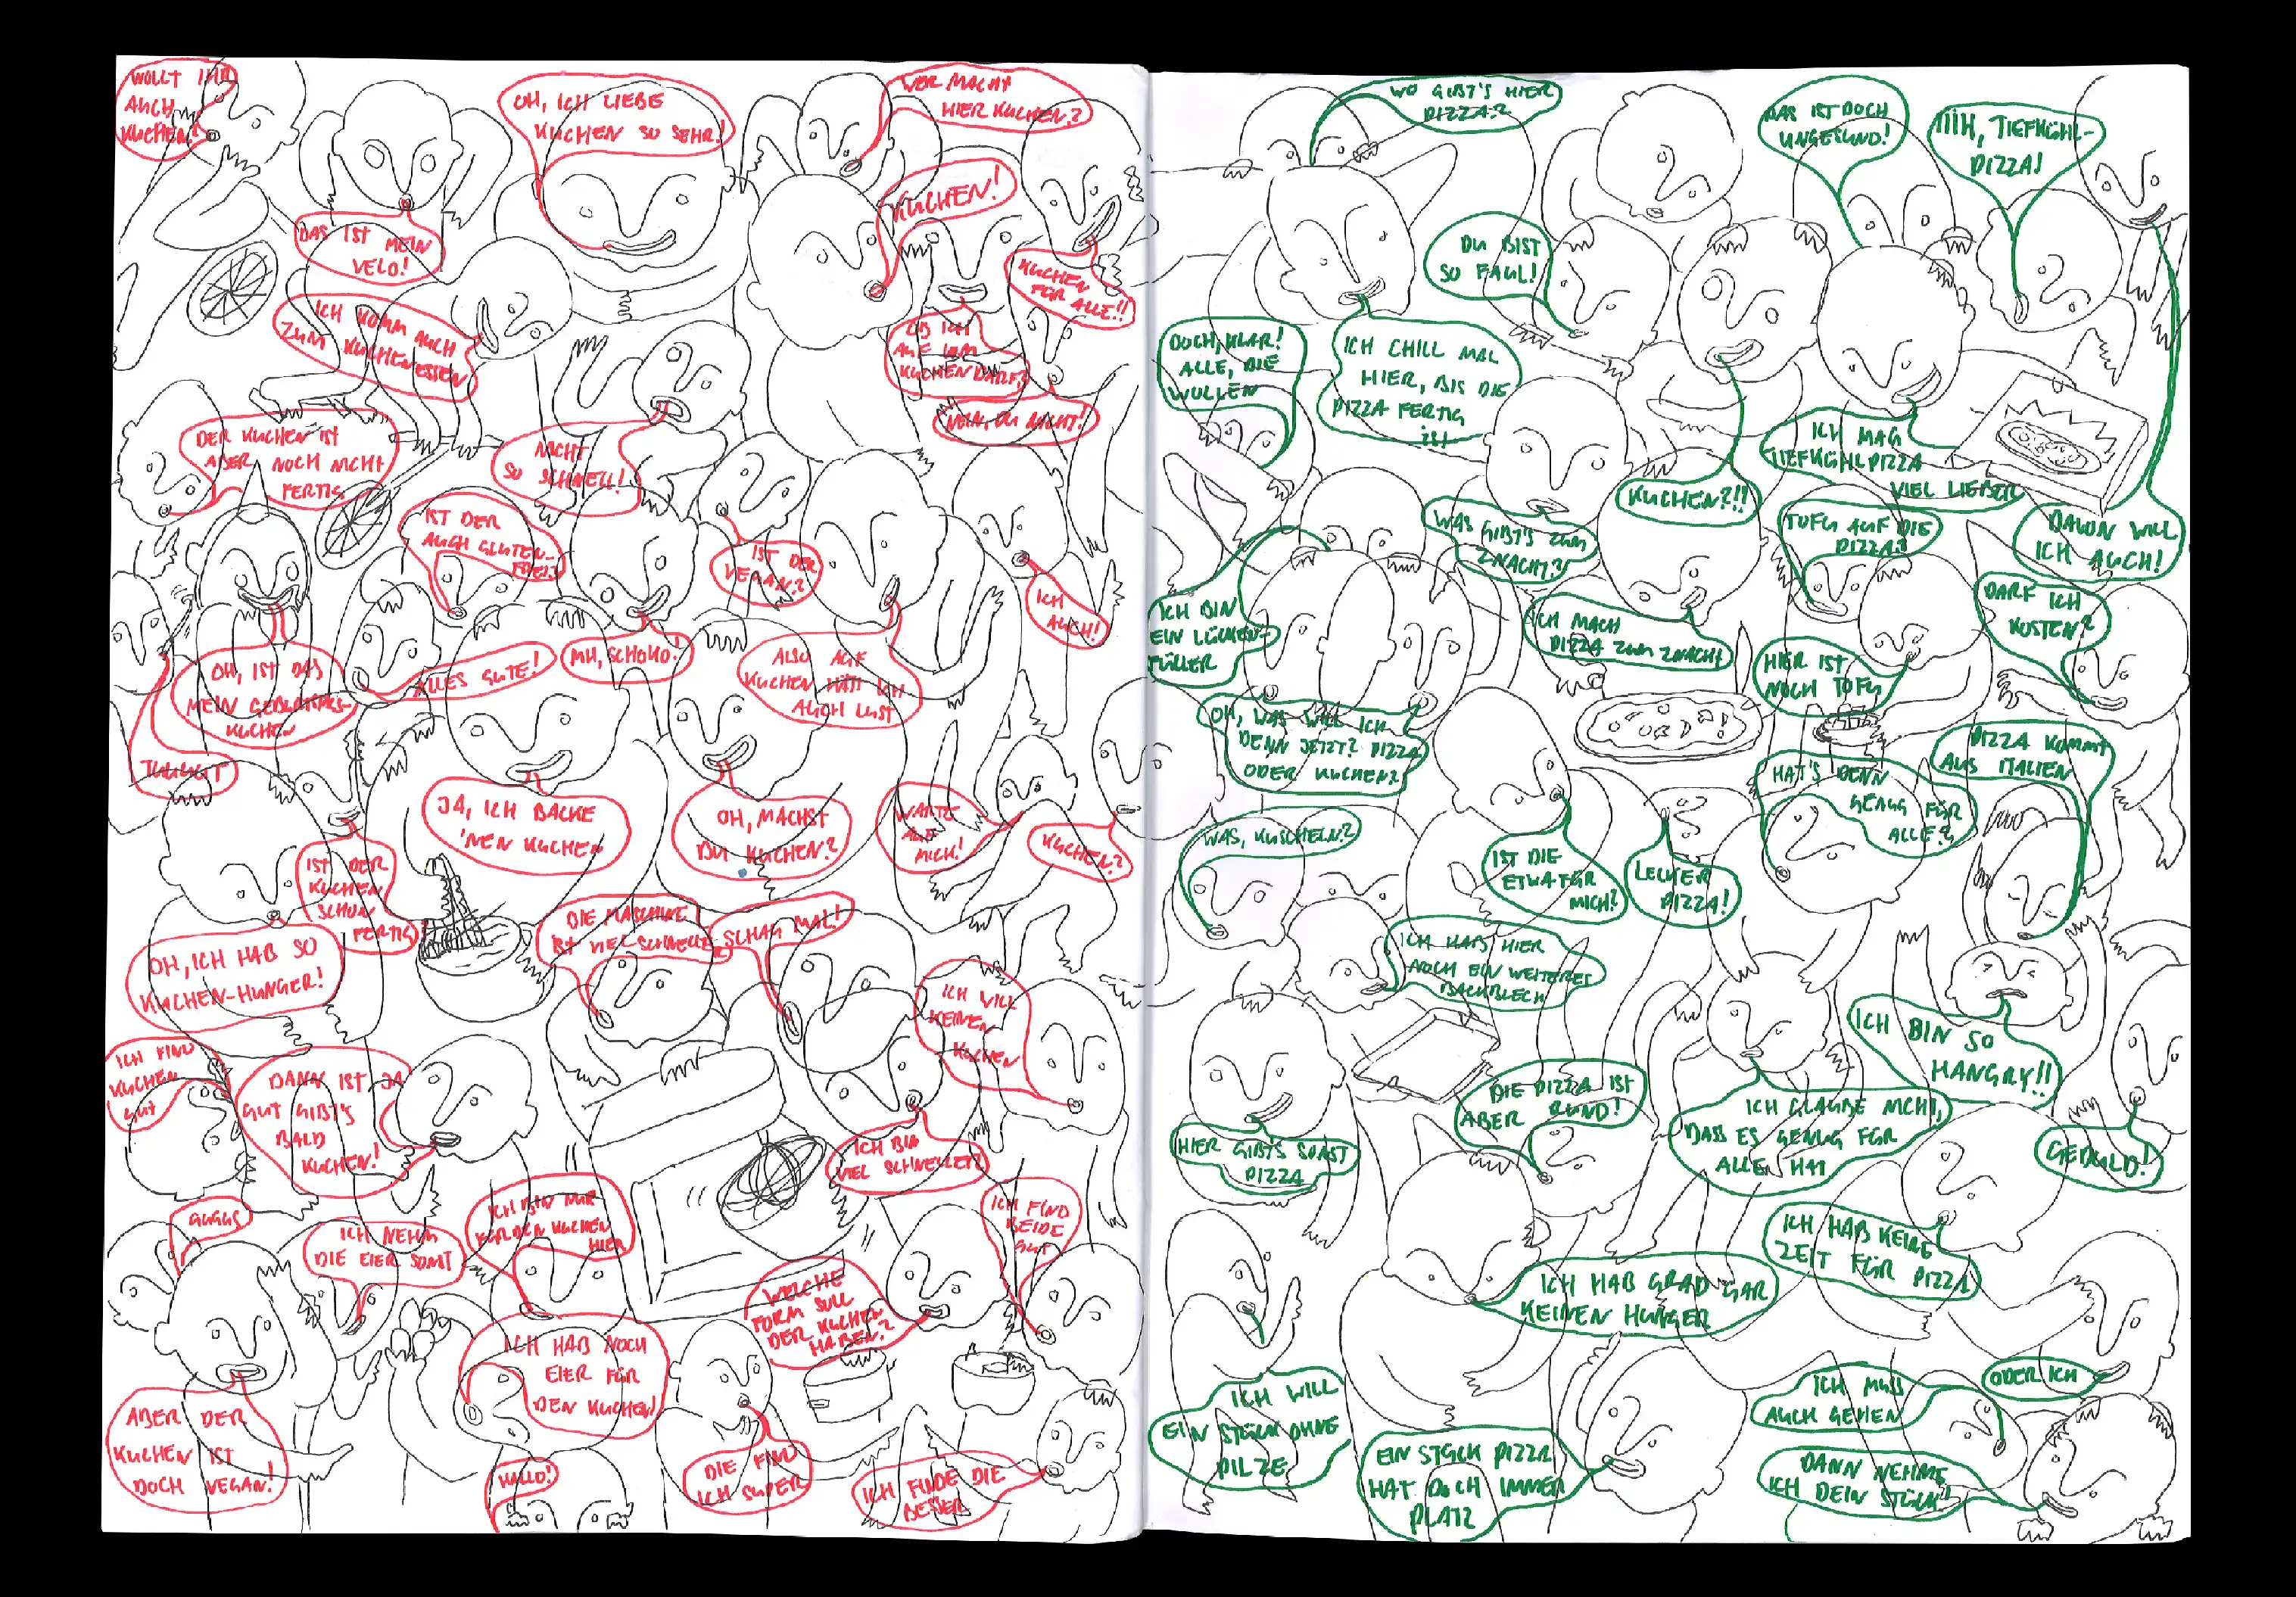 WOLLT IHR
AUCH
KUCHEN?
OH, ICH LIEBE
KUCHEN SO SEHR!
WER MACHT
HIER KUCHEN?
KUCHEN!
DAS IST MEIN
VELO!
KUCHEN
FÜR ALLE!!
ICH KOMM AUCH
ZUM KUCHENESSEN
OB ICH
AUF IHM
KUCHEN DARF?
NEIN, DU NICHT!
DER KUCHEN IST
ABER NOCH NICHT
FERTIG
NICHT
SO SCHNELL!
IST DER
AUCH GLUTEN-
FREI?
IST DER
VEGAN?
ICH
AUCH!
OH, IST DAS
MEIN GEBURTSTAGS-
KUCHEN
ALLES GUTE!
MH, SCHOKO!
ALSO AUF
KUCHEN HÄTT ICH
AUCH LUST
TUUUUT
JA, ICH BACKE
'NEN KUCHEN
OH, MACHST
DU KUCHEN?
WARTE
AUF
MICH!
KUCHEN?
IST DER
KUCHEN
SCHON
FERTIG
OH, ICH HAB SO
KUCHEN-HUNGER!
DIE MASCHINE
IST VIEL SCHNELLER
SCHAU MAL!
ICH WILL
KEINEN
KUCHEN
ICH FIND
KUCHEN
GUT
DANN IST JA
GUT GIBT'S
BALD
KUCHEN!
ICH BIN
VIEL SCHNELLER
GUGUS
ICH NEHM
DIE EIER SONST
ICH BIN NUR
FÜR DEN KUCHEN
HIER
ICH FIND
BEIDE
GUT
WELCHE
FORM SOLL
DER KUCHEN
HABEN?
ICH HAB NOCH
EIER FÜR
DEN KUCHEN!
ABER DER
KUCHEN IST
DOCH VEGAN!
HALLO!
DIE FIND
ICH SUPER
ICH FINDE DIE
BESSER
WO GIBT'S HIER
PIZZA?
DAS IST DOCH
UNGESUND!
IIIH, TIEFKÜHL-
PIZZA!
DU BIST
SO FAUL!
DOCH, KLAR!
ALLE, DIE
WOLLEN
ICH CHILL MAL
HIER, BIS DIE
PIZZA FERTIG
IST
ICH MAG
TIEFKÜHLPIZZA
VIEL LIEBER
KUCHEN?!!
WAS GIBT'S ZUM
ZNACHT?
TOFU AUF DIE
PIZZA?
DAVON WILL
ICH AUCH!
ICH BIN
EIN LÜCKEN-
FÜLLER
ICH MACH
PIZZA ZUM ZNACHT
HIER IST
NOCH TOFU
DARF ICH
KOSTEN?
OH, WAS WILL ICH
DENN JETZT? PIZZA
ODER KUCHEN?
HAT'S DENN
GENUG FÜR
ALLE?
PIZZA KOMMT
AUS ITALIEN
WAS, KUSCHELN?
IST DIE
ETWA FÜR
MICH?
LECKER
PIZZA!
ICH HAB HIER
NOCH EIN WEITERES
BACKBLECH
ICH BIN SO
HANGRY!!
DIE PIZZA IST
ABER RUND!
ICH GLAUBE NICHT,
DASS ES GENUG FÜR
ALLE HAT
GEDULD!
HIER GIBT'S SONST
PIZZA
ICH HAB KEINE
ZEIT FÜR PIZZA
ICH HAB GRAD GAR
KEINEN HUNGER
ICH WILL
EIN STÜCK OHNE
PILZE
EIN STÜCK PIZZA
HAT DOCH IMMER
PLATZ
ICH MUSS
AUCH GEHEN
ODER ICH
DANN NEHME
ICH DEIN STÜCK!